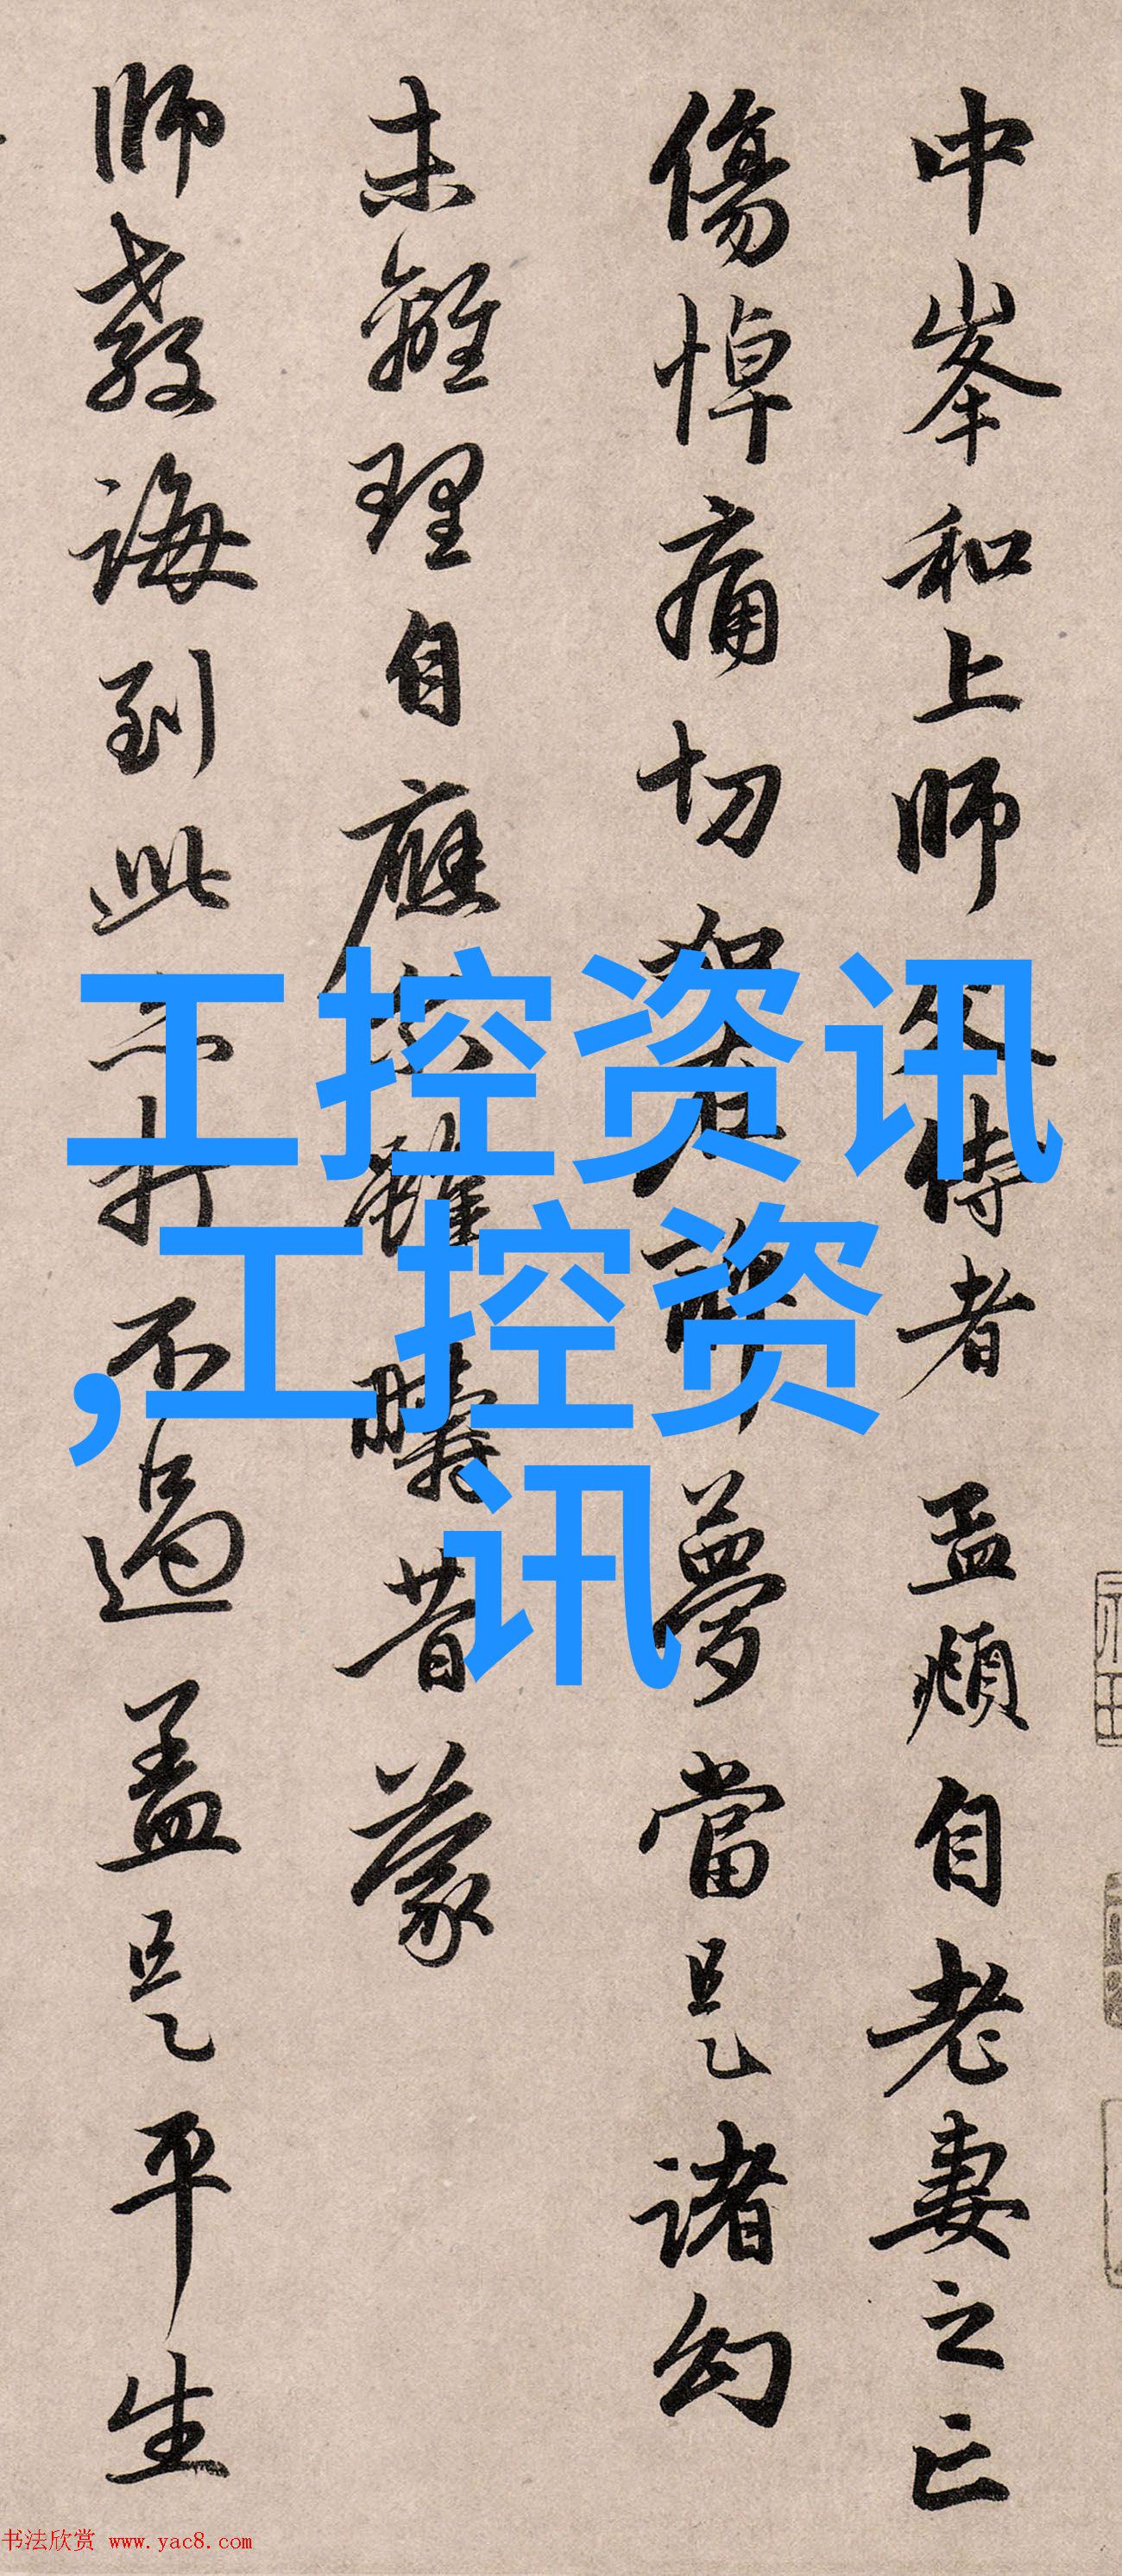 中峯和上師父侍者 孟頫自老妻之亡
傷悼痛切如在醉夢當是諸幻
未離理自應雖疇昔蒙
師教誨到此亦打不過蓋是平生
工控资讯
,工控资
讯
书法欣赏 www.yac8.com